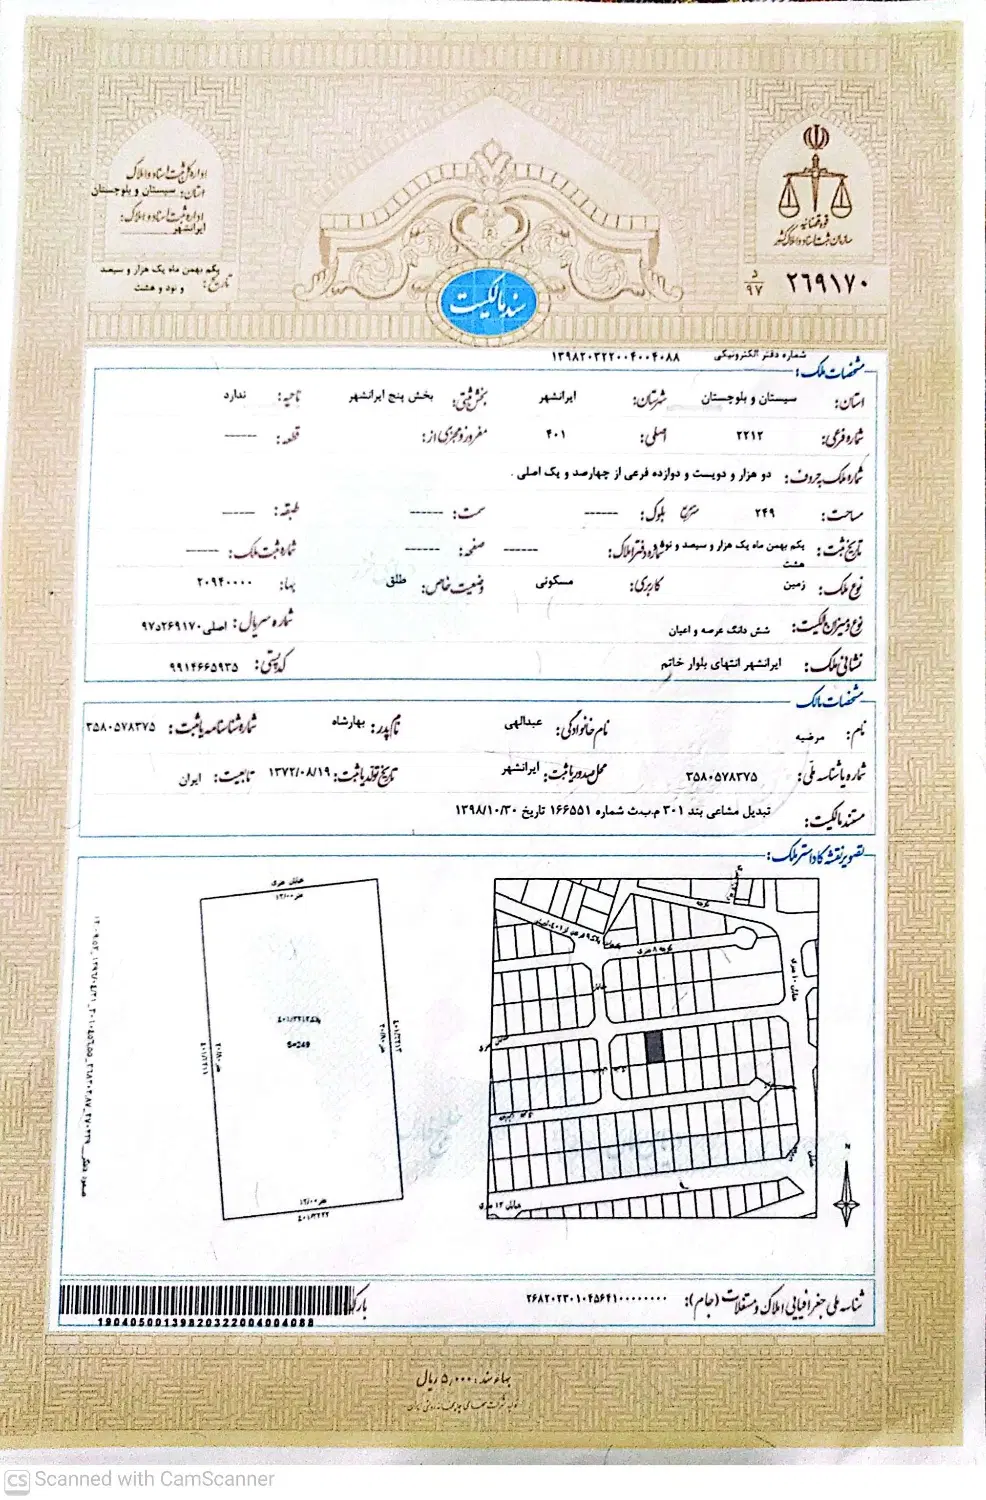 قوه قضائیه
سازمان ثبت اسناد و املاک کشور
۲۶۹۱۷۰ د/۹۷
اداره کل ثبت اسناد و املاک
استان: سیستان و بلوچستان
اداره ثبت اسناد و املاک:
ایرانشهر
تاریخ: یکم بهمن ماه یک هزار و سیصد
و نود و هشت
سند مالکیت
شماره دفتر الکترونیکی ۱۳۹۸۲۰۳۲۲۰۰۴۰۰۴۰۸۸
مشخصات ملک:
استان: سیستان و بلوچستان شهرستان: ایرانشهر بخش ثبتی: بخش پنج ایرانشهر ناحیه: ندارد
شماره فرعی: ۲۲۱۲ اصلی: ۴۰۱ مفروز و مجزی از: قطعه: ------
شماره ملک بحروف: دو هزار و دویست و دوازده فرعی از چهارصد و یک اصلی .
مساحت: ۲۴۹ متر مربع بلوک: ------ سمت: ------ طبقه: ------
تاریخ ثبت: یکم بهمن ماه یک هزار و سیصد و نود و هشت شماره دفتر املاک: ------ صفحه: ------ شماره ثبت ملک: ------
نوع ملک: زمین کاربری: مسکونی وضعیت خاص: طلق بها: ۲۰۹۴۰۰۰۰
نوع و میزان مالکیت: شش دانگ عرصه و اعیان شماره سریال: اصلی۲۶۹۱۷۰د۹۷
نشانی ملک: ایرانشهر انتهای بلوار خاتم کد پستی: ۹۹۱۴۶۶۵۹۳۵
مشخصات مالک
نام: مرضیه نام خانوادگی: عبدالهی نام پدر: بهارشاه شماره شناسنامه یا ثبت: ۳۵۸۰۵۷۸۳۷۵
شماره یا شناسه ملی: ۳۵۸۰۵۷۸۳۷۵ محل صدور یا ثبت: ایرانشهر تاریخ تولد یا ثبت: ۱۳۷۲/۰۸/۱۹ تابعیت: ایران
مستند مالکیت: تبدیل مشاعی بند ۳۰۱ م.ب.ث شماره ۱۶۶۵۵۱ تاریخ ۱۳۹۸/۱۰/۳۰
تصویر نقشه کاداستر ملک:
۱۲/۰۰ متر
پلاک۴۰۱/۲۲۱۲
S=249
۴۰۱/۲۲۱۳
۲۰/۸۰ متر
۲۰/۸۰ متر
۴۰۱/۲۲۱۱
۱۲/۰۰ متر
۴۰۱/۲۲۲۲
کوچه
کوچه ۸ متری
خیابان ۱۰ متری
خیابان
خیابان ۱۲ متری
N
شناسه ملی جغرافیایی املاک و مستغلات (جام): ۲۶۸۲۰۲۳۰۱۰۴۵۶۴۱۰۰۰۰۰۰۰۰۰
بارکد
190405001398203220040040​88
بهاء سند: ۵,۰۰۰ ریال
CS Scanned with CamScanner